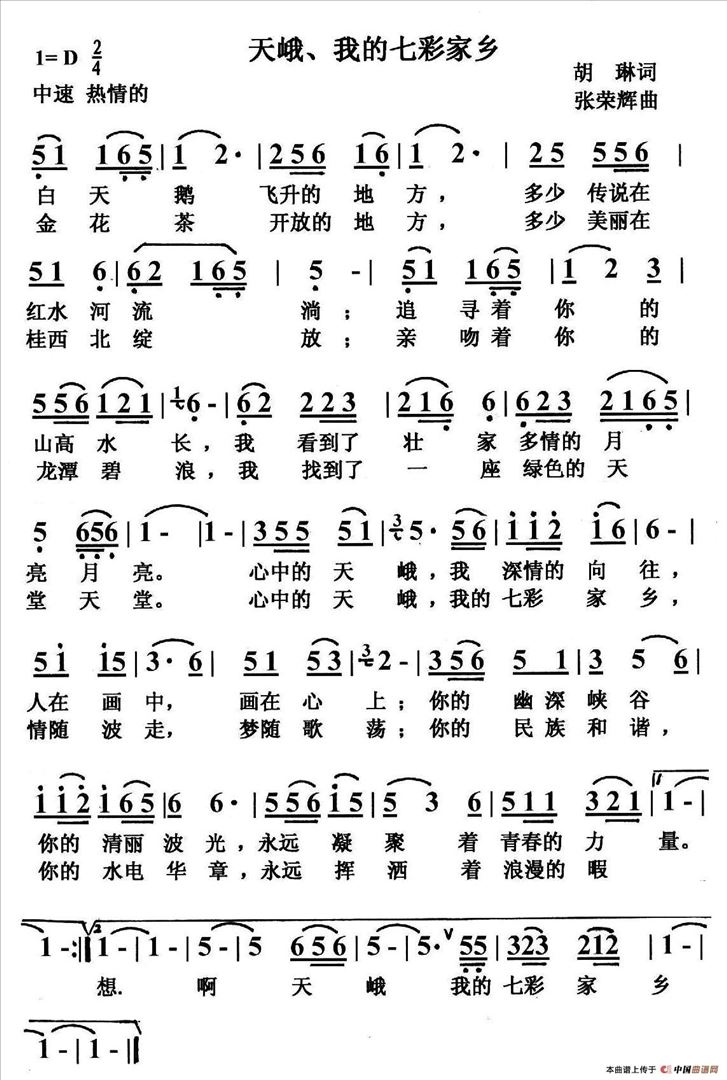 天峨、我的七彩家乡
1=D 2/4
中速 热情的
胡 琳词
张荣辉曲
51 165 | 1 2· | 256 16 | 2 - | 25 556 |
白 天 鹅 飞升的 地 方， 多少 传说在
金 花 茶 开放的 地 方， 多少 美丽在
51 6 | 62 165 | 5 - | 51 165 | 1 2 3 |
红水 河 流 淌； 追 寻着 你 的
桂西 北 绽 放； 亲 吻着 你 的
556 121 | 1/6 - | 62 223 | 216 6 | 623 2165 |
山高 水 长，我 看到了 壮 家 多情的 月
龙潭 碧 浪，我 找到了 一 座 绿色的 天
5 656 | 1 - | 1 - | 355 51 | 3/5· 56 | 112 16 | 6 - |
亮 月 亮。 心中的 天 峨，我 深情的 向 往，
堂 天 堂。 心中的 天 峨，我的 七彩 家 乡，
51 15 | 3· 6 | 51 53 | 3/2 - | 356 5 1 | 3 5 6 |
人在 画 中， 画在 心 上；你的 幽 深 峡 谷
情随 波 走， 梦随 歌 荡；你的 民 族 和 谐，
112 165 | 6 6· | 556 15 | 5 3 6 | 511 321 | 1. 1 - |
你的 清丽 波 光，永远 凝 聚 着 青春的 力 量。
你的 水电 华 章，永远 挥 洒 着 浪漫的 暇
1 - :| 2. 1 - | 1 - | 5 - | 5 - | 656 | 5 - | 5· ∨ 55 | 323 212 | 1 - |
想. 啊 天 峨 我的 七彩 家 乡
1 - | 1 - |
本曲谱上传于 中国曲谱网